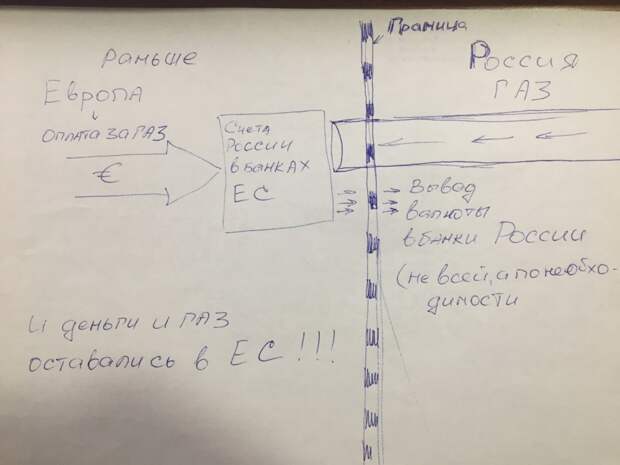 Раньше
Европа
оплата за газ
€
Счета
России
в банках
ЕС
Граница
Россия
ГАЗ
Вывод
валюты
в банки России
(не всей, а по необхо-
димости
И деньги и газ
оставались в ЕС!!!